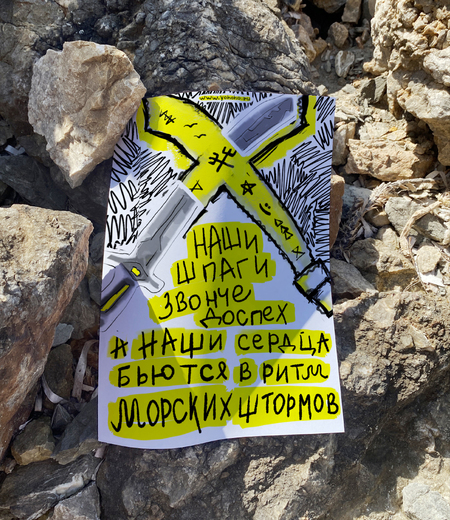 НАШИ
ШПАГИ
ЗВОНЧЕ
ДОСПЕХ
А НАШИ СЕРДЦА
БЬЮТСЯ В РИТМ
МОРСКИХ ШТОРМОВ